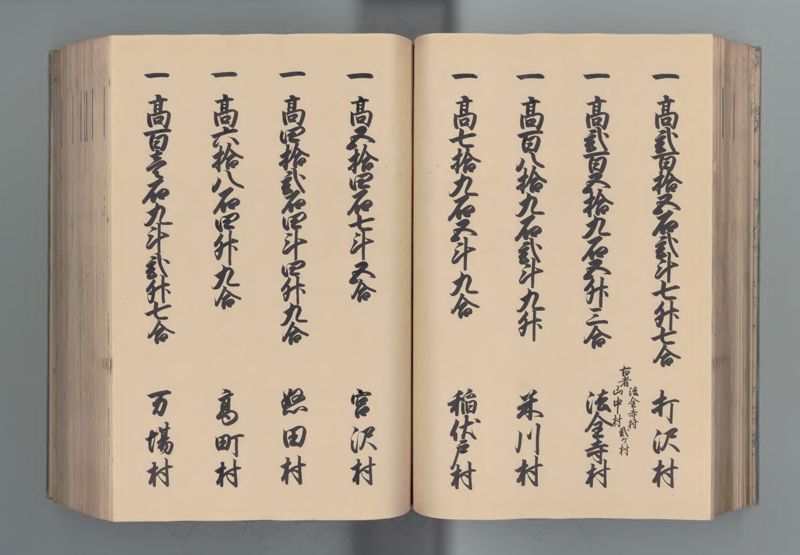 一 高弐百拾五石弐斗七升七合 打沢村
一 高弐百五拾九石五升三合 法全寺村
古者 法全寺村 山中村 弐ケ村
一 高百八拾九石弐斗九升 米川村
一 高七拾九石五斗九合 稲伏戸村
一 高五拾四石七斗五合 宮沢村
一 高四拾弐石四斗四升九合 悠田村
一 高六拾八石四升九合 高町村
一 高百壱石九斗弐升七合 万場村